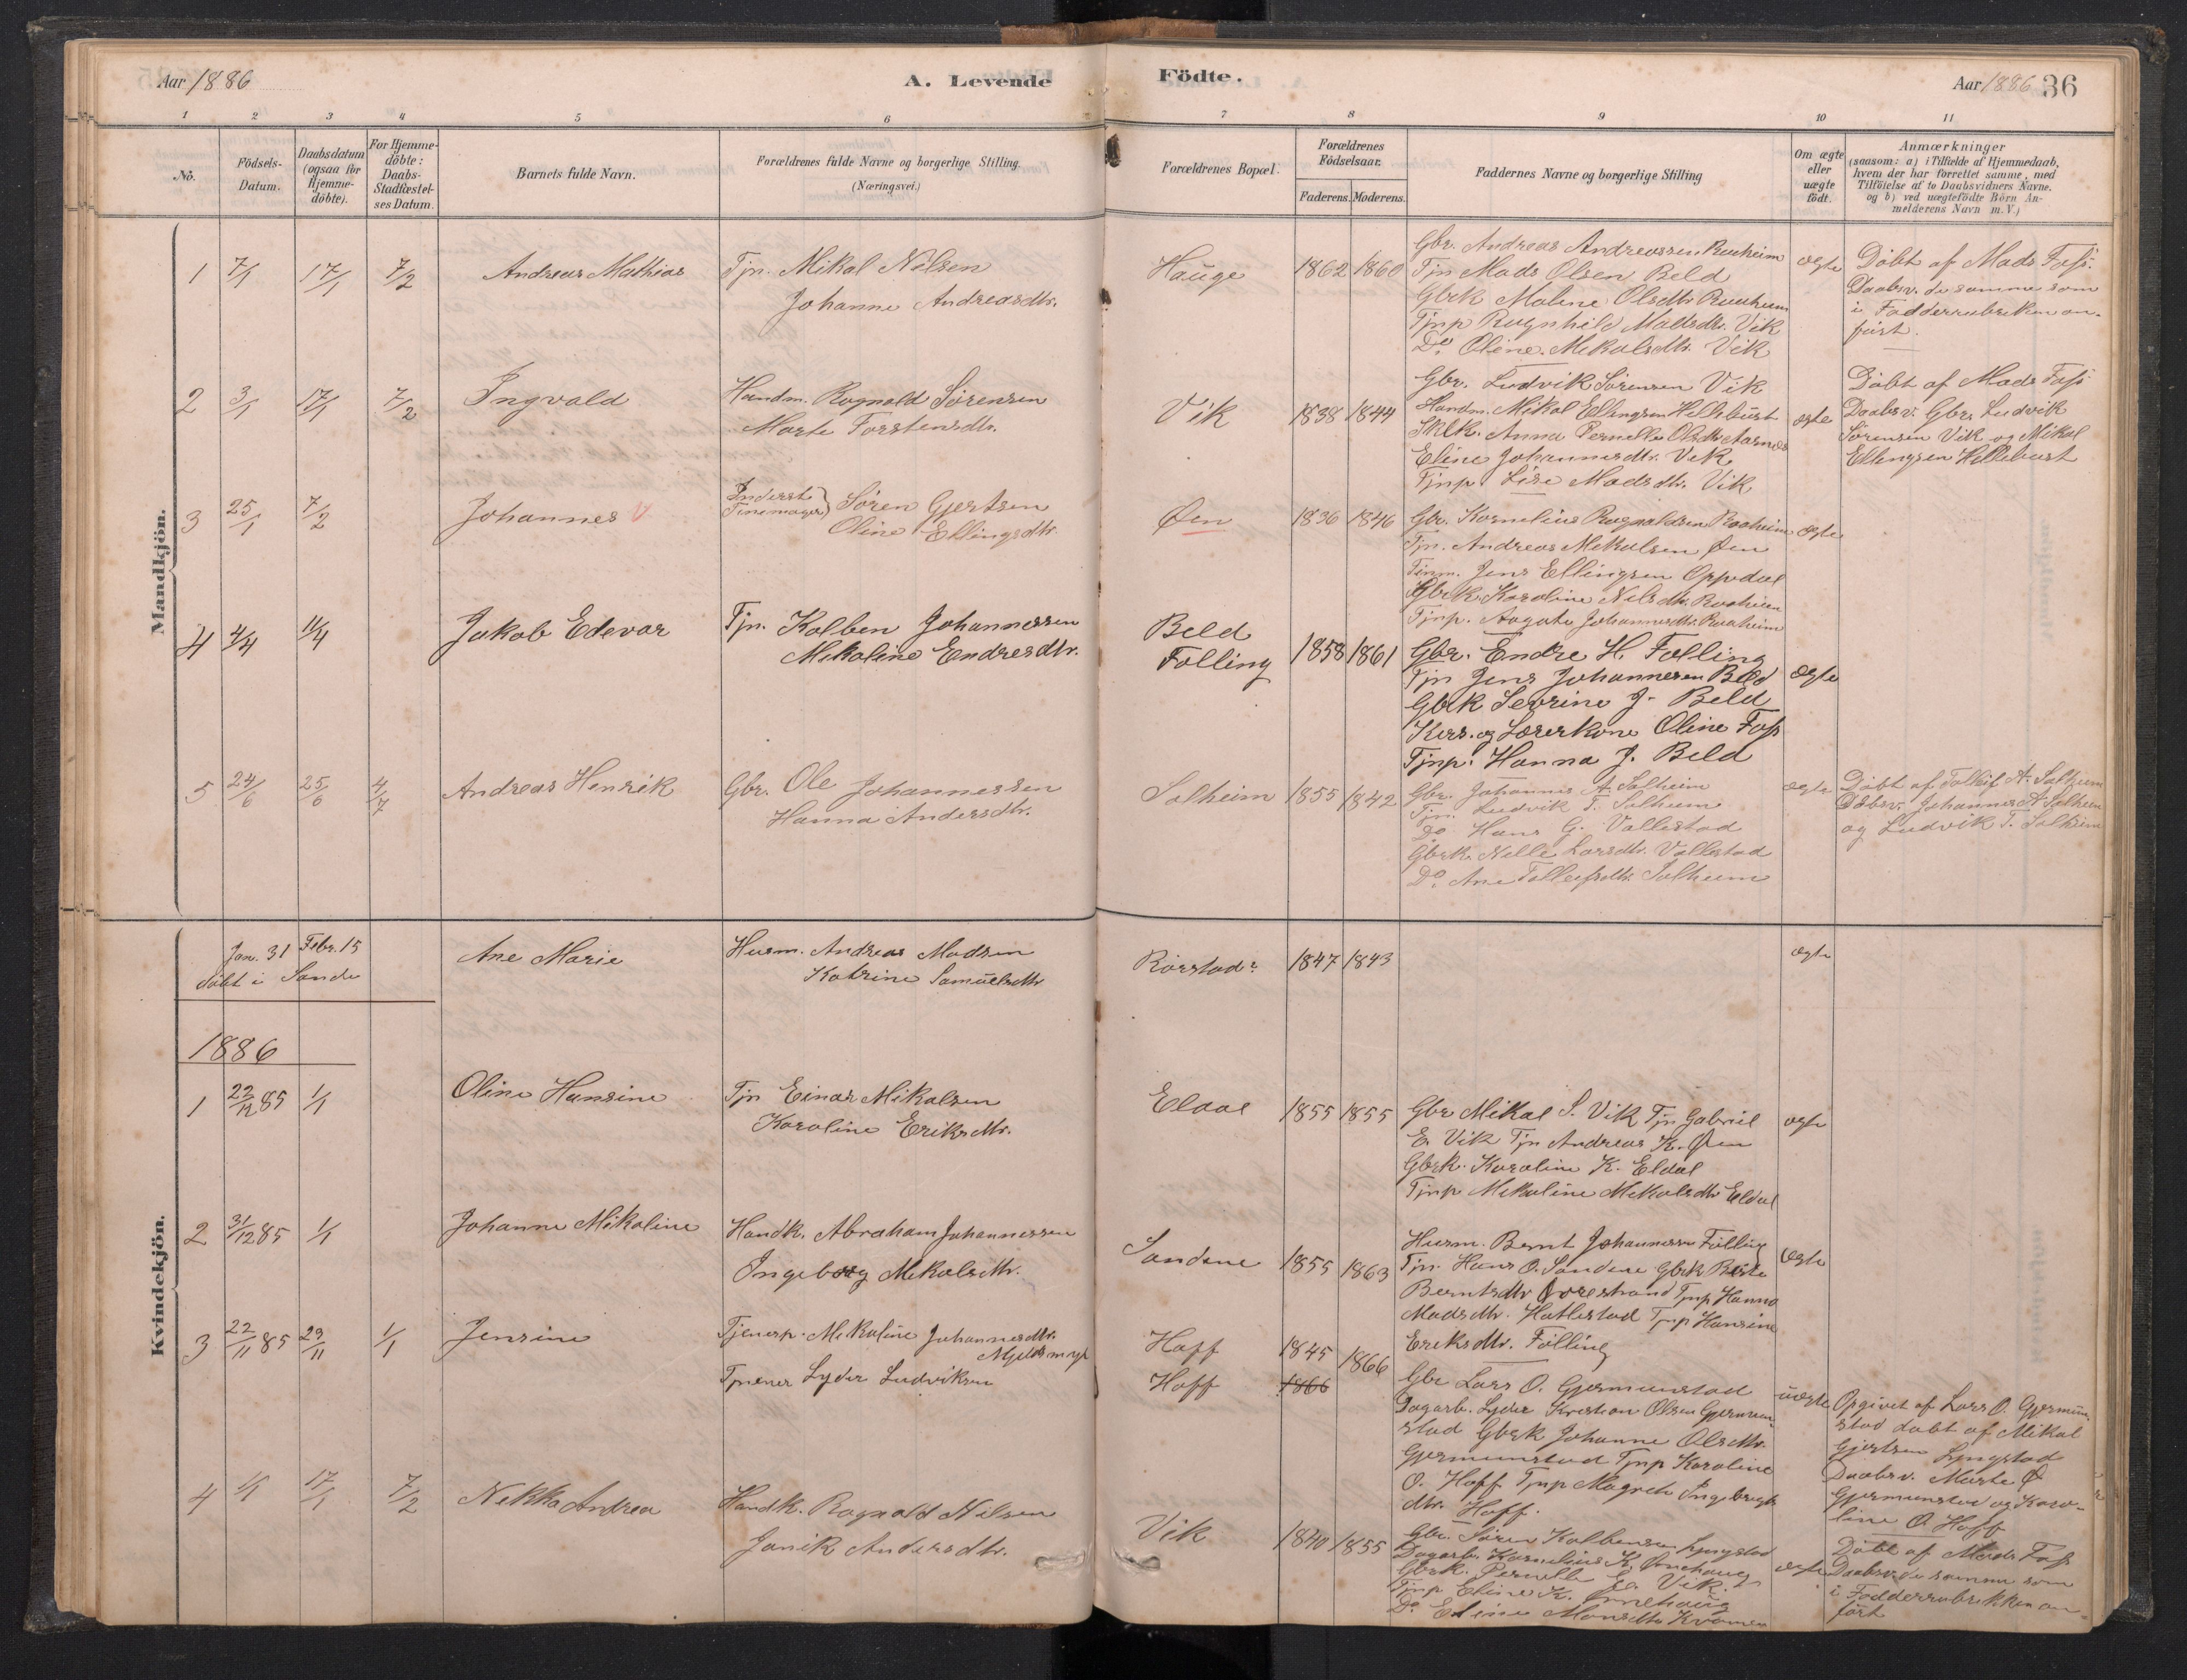 Aar 1886
A. Levende
Födte.
Aar 1886
36
1 2 3 4 5 6 7 8 9 10 11
No.
Födsels-Datum.
Daabsdatum (ogsaa för Hjemme-döbte).
For Hjemme-döbte: Daabs-Stadfæstel-ses Datum.
Barnets fulde Navn.
Forældrenes fulde Navne og borgerlige Stilling.
(Næringsvei.)
Forældrenes Bopæl.
Forældrenes Födselsaar.
Faderens. Moderens.
Faddernes Navne og borgerlige Stilling
Om ægte eller uægte födt.
Anmærkninger
(saasom: a) i Tilfælde af Hjemmedaab,
hvem der har forrettet samme, med
Tilföielse af to Daabsvidners Navne.
og b) ved uægtefödte Börn An-
melderens Navn m.V.)
Mandkjön.
1 7/1 17/1 7/2 Andreas Mathias
Tjn. Mikal Nilsen
Johanne Andreasdtr.
Hauge 1862 1860
Gbr. Andreas Andreassen Ruuheim
Tjn Mads Olsen Beld
Gbrk Malene Olsdtr Ruuheim
Tjnp Ragnhild Madsdtr. Vik
Do. Oline Mikalsdtr. Vik
ægte
Döbt af Mads Foss.
Daabsv. de samme som
i Fadderrubriken an-
fört.
2 3/1 17/1 7/2 Ingvald
Handm. Ragnald Sörensen
Marte Torstensdtr.
Vik 1838 1844
Gbr. Ludvik Sörensen Vik
Handm. Mikal Ellingsen Hellebust
Sklk. Anna Pernelle Olsdtr Aarnes
Eline Johannesdtr. Vik
Tjnp Lise Madsdtr. Vik
ægte
Döbt af Mads Foss
Daabsv. Gbr. Ludvik
Sörensen Vik og Mikal
Ellingsen Hellebust
3 25/1 7/2 Johannes V
Inderst Tinemager) Sören Gjertsen
Oline Ellingsdtr.
Øen 1836 1846
Gbr. Kornelius Ragnaldsen Roaheim
Tjn. Andreas Mikalsen Øen
Tinm. Jens Ellingsen Oppedal
Gbrk. Karoline Nilsdtr. Roaheim
Tjnp. Aagote Johannesdtr. Roaheim
ægte
4 4/4 11/4 Jakob Edevar
Tjn. Kolben Johannessen
Mikaline Endresdtr.
Beld
Folling 1858 1861
Gbr. Endre H. Folling
Tjn Jens Johannesen Beld
Gbrk Sevrine J. Beld
Kirs. og Lærerkone Oline Foss
Tjnp: Hanna J. Beld
ægte
5 24/6 25/6 4/7 Andreas Henrik
Gbr. Ole Johannessen
Hanna Andersdtr.
Solheim 1855 1842
Gbr. Johannes A. Solheim
Tjn. Ludvik T. Solheim
Do Hans G. Vallestad
Gbrk. Nille Larsdtr. Vallestad
Do. Ane Tolleifsdtr. Solheim
ægte
Döbt af Tolleif A. Solheim
Daabsv. Johannes A. Solheim
og Ludvik T. Solheim
Kvindekjön.
Jan. 31 Febr. 15
döbt i Sande
Ane Marie
Husm. Andreas Madsen
Katrine Samuelsdtr
Rörstad 1847 1843 ægte
1886
1 22/12 85 1/1 Oline Hansine
Tjn Einar Mikalsen
Karoline Eriksdtr.
Eldal 1855 1855
Gbr Mikal S. Vik Tjn Gabriel
E. Vik Tjn Andreas K. Øen
Gbrk. Karoline K. Eldal
Tjnp Mikaline Mikalsdtr Eldal
ægte
2 31/12 85 1/1 Johanne Mikaline
Handk. Abraham Johannessen
Ingeborg Mikalsdtr.
Sandene 1855 1863
Husm. Bernt Johannessen Fölling
Tjn. Hans O. Sandene Gbrk Berte
Berntsdtr Örestrand Tjnp Hanna
Madsdtr. Hatlestad Tjnp Hansine
Eriksdtr. Fölling
ægte
3 22/11 85 29/11 1/1 Jensine
Tjenerp. Mikaline Johannesdtr.
Mjeldemyr
Tjener Lyder Ludviksen
Hoff 1845 1866
Hoff 1866
Gbr Lars O. Gjermundstad
Dagarb. Lyder Kristian Olsen Gjermun-
stad Gbrk Johanne Olsdtr.
Gjermunstad Tjnp Karoline
O. Hoff Tjnp Magrete Ingebrigts
dtr. Hoff.
uægte
Opgivet af Lars O. Gjermun-
stad döbt af Mikal
Gjertsen Lyngstad
Daabsv. Marte O
Gjermunstad og Karo-
line O. Hoff
4 1/1 17/1 7/2 Nekka Andrea
Handk. Ragnald Nilsen
Janik Andersdtr.
Vik 1840 1855
Gbr. Sören Kolbensen Lyngstad
Dagarb. Kornelius K. Ørnehaug
Gbrk. Pernelle E. Vik.
Tjnp Eline K. Ørnehaug
Do Eline Monsdtr Kvamen
ægte
Döbt af Mads Foss
Daabsv. de samme som
i Fadderrubrikken an-
fört